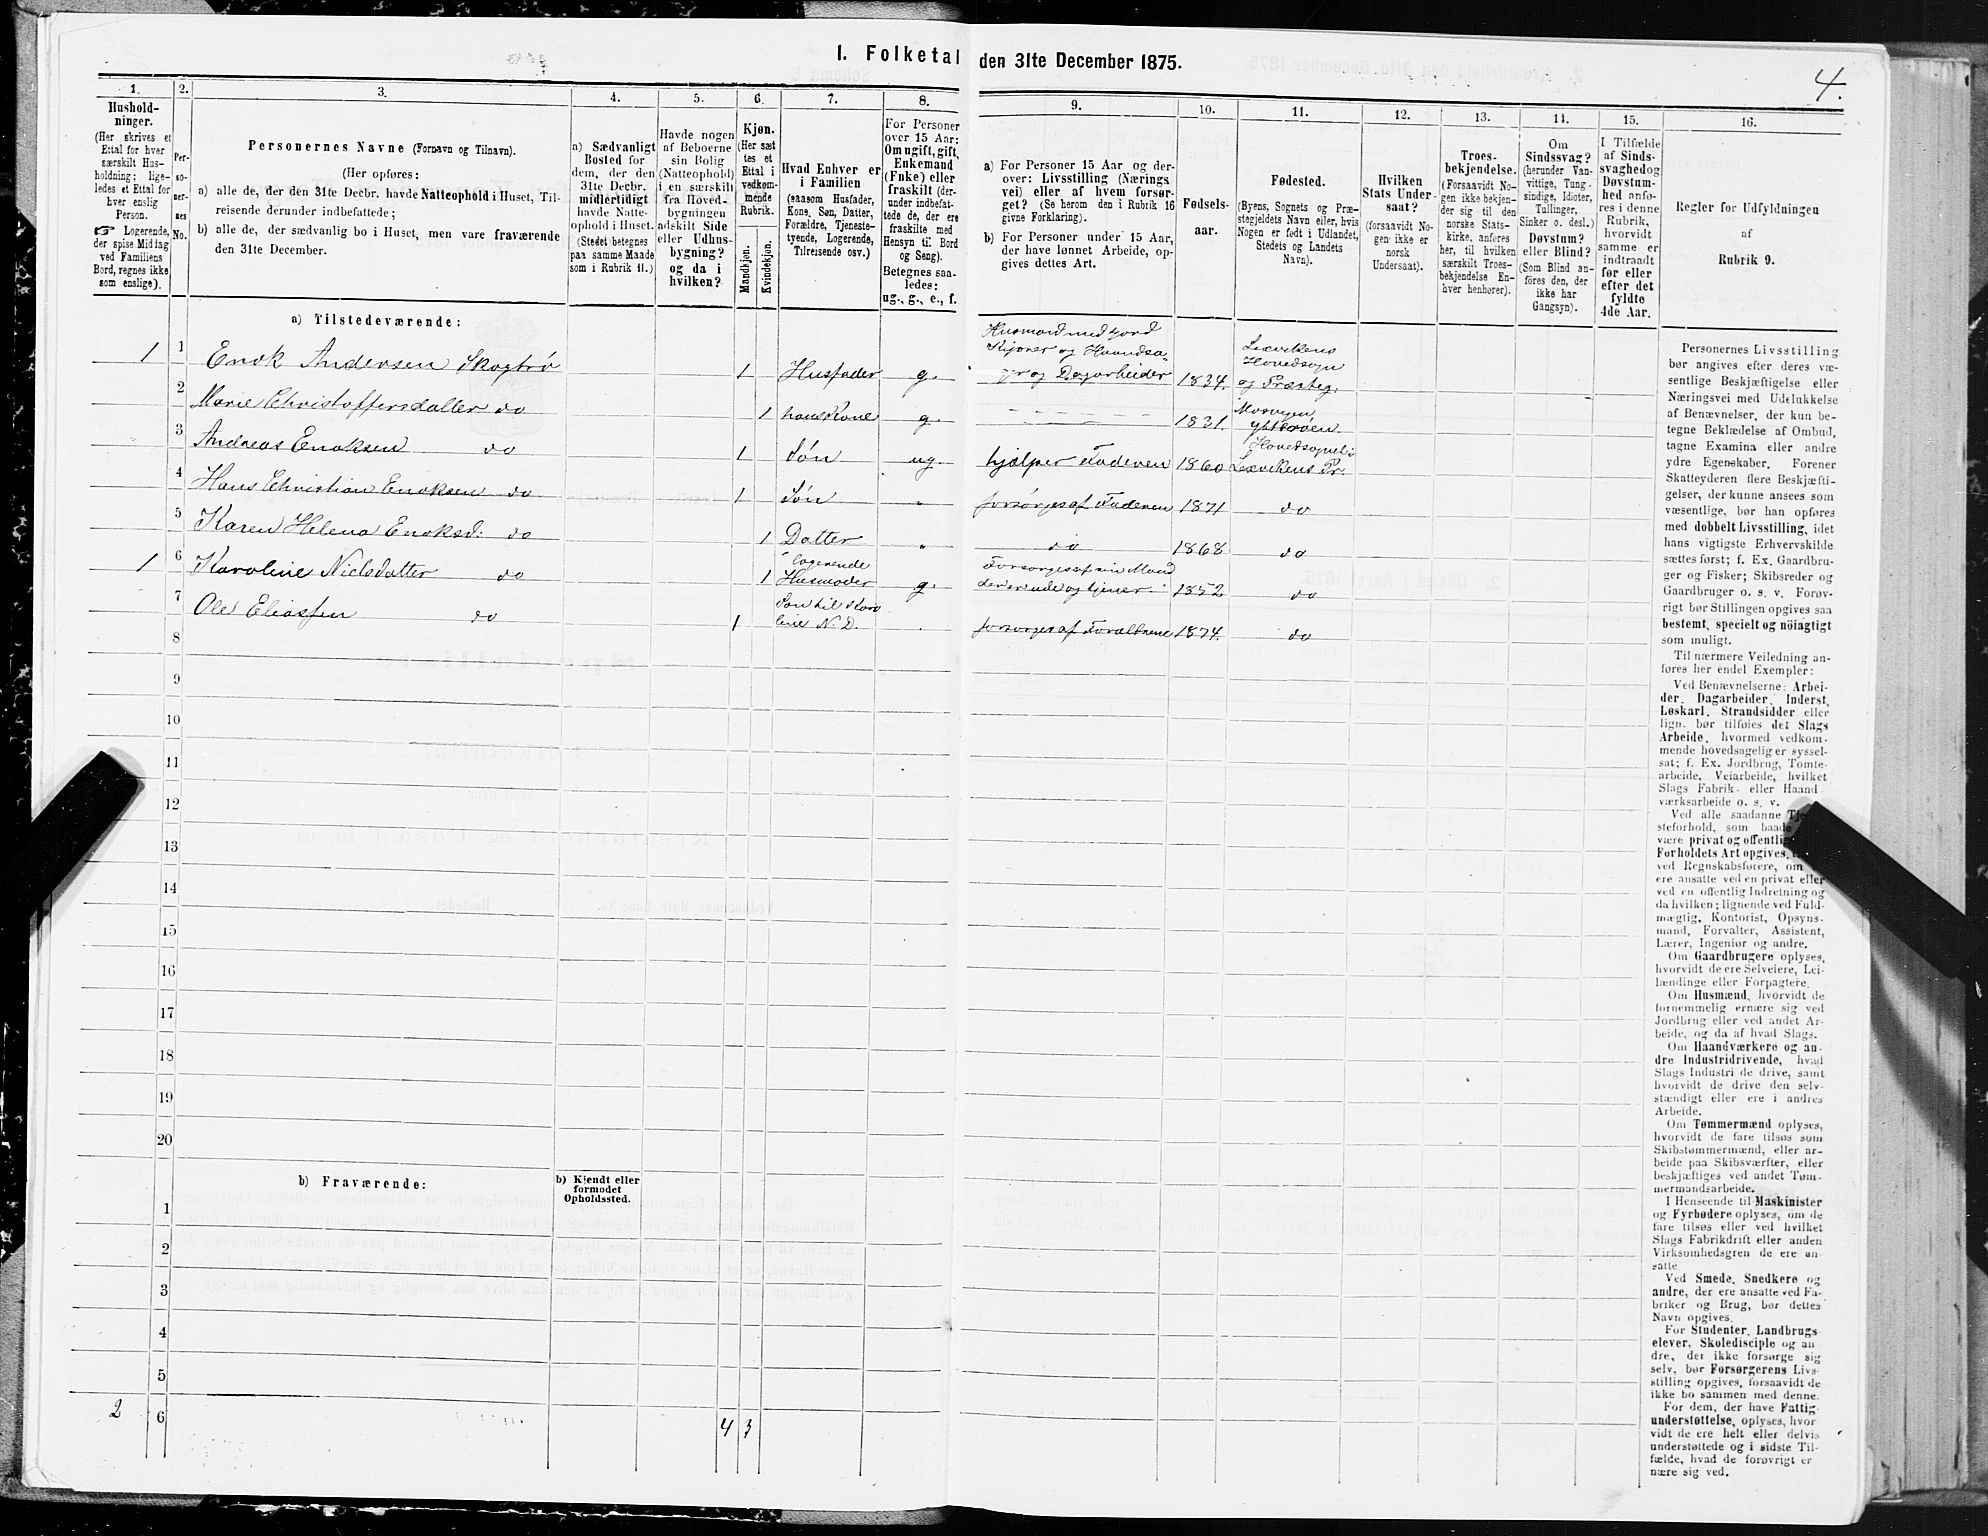 I. Folketal den 31te December 1875.
4.
1.
Hushold-
ninger.
(Her skrives et
Ettal for hver
særskilt Hus-
holdning; lige-
ledes et Ettal for
hver enslig
Person.
☞ Logerende,
der spise Middag
ved Familiens
Bord, regnes ikke
som enslige).
2.
Per-
so-
ner-
nes
No.
3.
Personernes Navne (Fornavn og Tilnavn).
(Her opføres:
a) alle de, der den 31te Decbr. havde Natteophold i Huset, Til-
reisende derunder indbefattede;
b) alle de, der sædvanlig bo i Huset, men vare fraværende
den 31te December.
4.
a) Sædvanligt
Bosted for
dem, der den
31te Decbr.
midlertidigt
havde Natte-
ophold i Huset.
(Stedet betegnes
paa samme Maade
som i Rubrik 11.)
5.
Havde nogen
af Beboerne
sin Bolig
(Natteophold)
i en særskilt
fra Hoved-
bygningen
adskilt Side
eller Udhus-
bygning?
og da i
hvilken?
6.
Kjøn.
(Her sæt
tes et
Ettal i
vedkom-
mende
Rubrik.
Mandkjøn.
Kvindekjøn.
7.
Hvad Enhver er
i Familien
(saasom Husfader,
Kone, Søn, Datter,
Forældre, Tjeneste-
tyende, Logerende,
Tilreisende osv.)
8.
For Personer
over 15 Aar:
Om ugift, gift,
Enkemand
(Enke) eller
fraskilt (der-
under indbefat-
tede de, der ere
fraskilte med
Hensyn til Bord
og Seng).
Betegnes saa-
ledes:
ug., g., e., f.
9.
a) For Personer 15 Aar og der-
over: Livsstilling (Nærings
vei) eller af hvem forsør-
get? (Se herom den i Rubrik 16
givne Forklaring).
b) For Personer under 15 Aar,
der have lønnet Arbeide, op-
gives dettes Art.
10.
Fødsels-
aar.
11.
Fødested.
(Byens, Sognets og Præ-
stegjeldets Navn eller, hvis
Nogen er født i Udlandet,
Stedets og Landets
Navn).
12.
Hvilken
Stats Under-
saat?
(forsaavidt No-
gen ikke er
norsk
Undersaat).
13.
Troes-
bekjendelse.
(Forsaavidt No-
gen ikke bekjen-
der sig til den
norske Stats-
kirke, anføres
her, til hvilken
særskilt Troes-
bekjendelse En-
hver henhører).
14.
Om
Sindssvag?
(herunder Van-
vittige, Tung-
sindige, Idioter,
Tullinger,
Sinker o. desl.).
Døvstum?
eller Blind?
(Som Blind an-
føres den, der
ikke har
Gangsyn).
15.
I Tilfælde
af Sinds-
svaghed og
Døvstum-
hed anfø-
res i denne
Rubrik,
hvorvidt
samme er
indtraadt
før eller
efter det
fyldte
4de Aar.
16.
Regler for Udfyldningen
af
Rubrik 9.
a) Tilstedeværende:
1 1 Enok Andersen Skogtrø 1 Husfader g. Husmand med Jord
Kjører og
og Dagarbeider 1834. Lexvikens
Hovedsogn
og Præsteg.
2 Marie Christoffersdatter do 1 hans Kone g. 1831. Mosvigen
Ytterøen
3 Andreas Enoksen do 1 Søn ug. hjælper Faderen 1860 Hovedsognet i
Lexvikens Pr.
4 Hans Christian Enoksen do 1 Søn " forsørges af Faderen 1871 do
5 Karen Helena Enoksd: do 1 Datter " do 1868 do
1 6 Karoline Nielsdatter do 1 logerende
Husmoder g. Forsørges af sin Mand
der er ude og tjener 1852 do
7 Ole Eliassen do 1 Søn til Karo
line N. D. . forsørges af Forældrene 1874. do
8
9
10
11
12
13
14
15
16
17
18
19
20
b) Fraværende:
b) Kjendt eller
formodet
Opholdssted.
1
2
3
4
5
2 6 4 3
Personernes Livsstilling
bør angives efter deres væ-
sentlige Beskjæftigelse eller
Næringsvei med Udelukkelse
af Benævnelser, der kun be-
tegne Beklædelse af Ombud,
tagne Examina eller andre
ydre Egenskaber. Forener
Skatteyderen flere Beskjæfti-
gelser, der kunne ansees som
væsentlige, bør han opføres
med dobbelt Livsstilling, idet
hans vigtigste Erhvervskilde
sættes først; f. Ex. Gaardbru-
ger og Fisker; Skibsreder og
Gaardbruger o. s. v. Forøv-
rigt bør Stillingen opgives saa
bestemt, specielt og nöiagtigt
som muligt.
Til nærmere Veiledning an-
føres her endel Exempler:
Ved Benævnelserne: Arbei-
der, Dagarbeider, Inderst,
Løskarl, Strandsidder eller
lign. bør tilføies det Slags
Arbeide, hvormed vedkom-
mende hovedsagelig er syssel-
sat; f. Ex. Jordbrug, Tomte-
arbeide, Veiarbeide, hvilket
Slags Fabrik- eller Haand-
værksarbeide o. s. v.
Ved alle saadanne
steforhold, som baade
være privat og offentlig
Forholdets Art opgives,
ved Regnskabsførere, om
ere ansatte ved en privat eller
ved en offentlig Indretning og
da hvilken; lignende ved Fuld-
mægtig, Kontorist, Opsyns-
mand, Forvalter, Assistent,
Lærer, Ingeniør og andre.
Om Gaardbrugere oplyses,
hvorvidt de ere Selveiere, Lei-
lændinge eller Forpagtere.
Om Husmænd, hvorvidt de
fornemmelig ernære sig ved
Jordbrug eller ved andet Ar-
beide, og da af hvad Slags.
Om Haandværkere og an-
dre Industridrivende, hvad
Slags Industri de drive, samt
hvorvidt de drive den selv-
stændigt eller ere i andres
Arbeide.
Om Tømmermænd oplyses,
hvorvidt de fare tilsøs som
Skibstømmermænd, eller ar-
beide paa Skibsværfter, eller
beskjæftiges ved andet Tøm-
mermandsarbeide.
I Henseende til Maskinister
og Fyrbødere oplyses, om de
fare tilsøs eller ved hvilket
Slags Fabrikdrift eller anden
Virksomhedsgren de ere an-
satte.
Ved Smede, Snedkere og
andre, der ere ansatte ved Fa-
briker og Brug, bør dettes
Navn opgives.
For Studenter, Landbrugs
elever, Skoledisciple og an
dre, der ikke forsørge sig
selv, bør Forsørgerens Livs-
stilling opgives, forsaavidt de
ikke bo sammen med denne.
For dem, der have Fattig
understøttelse, oplyses, hvor
vidt de ere helt eller delvis
understøttede og i sidste Til-
fælde, hvad de forøvrigt er
nære sig ved.